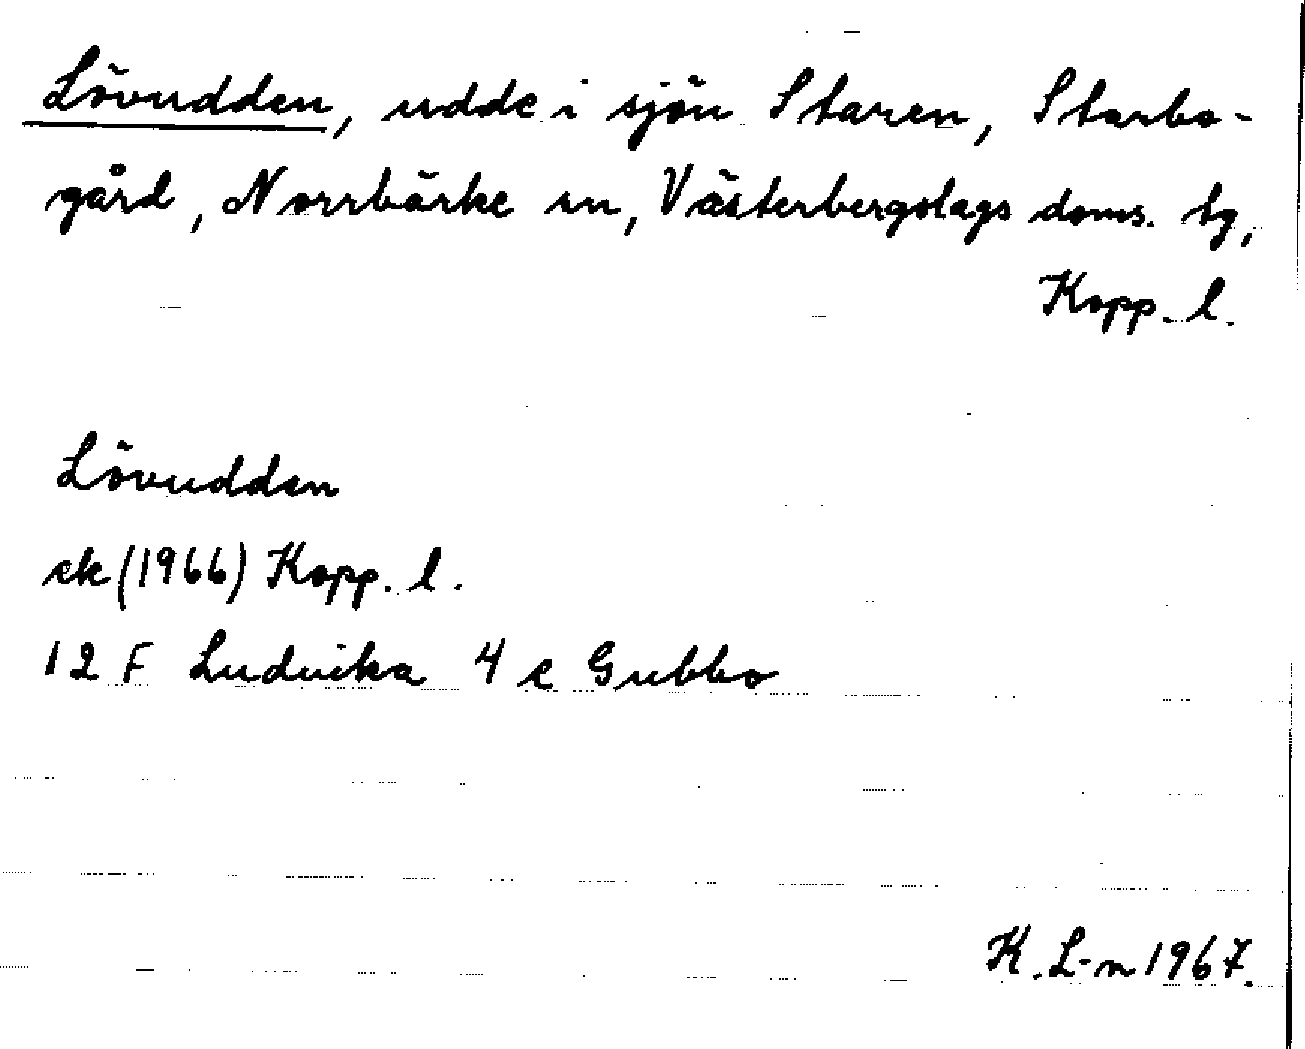 Lövudden, udde i sjön Staren, Starbo-
gård, Norrbärke sn, Västerbergslags doms. tg,
Kopp. l.
Lövudden
ek (1966) Kopp. l.
12 F Ludvika 4 e Gubbo
K. L-n 1967.